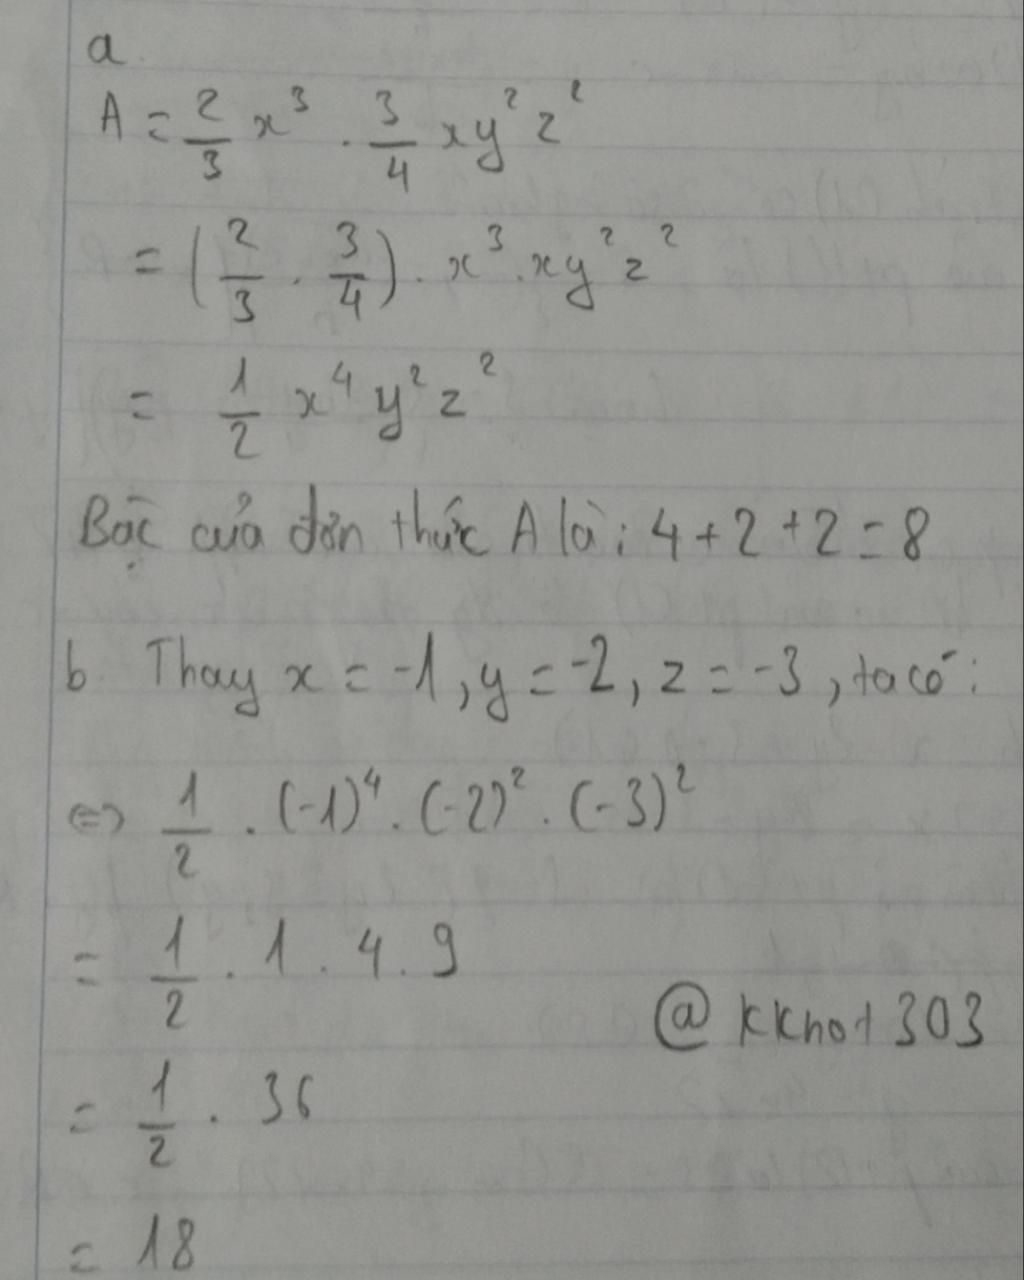 a.
A = 2/3 x³ . 3/4 xy²z²
= (2/3 . 3/4) . x³ . xy²z²
= 1/2 x⁴y²z²
Bậc của đơn thức A là: 4+2+2=8
b. Thay x = -1, y = -2, z = -3, ta có:
<=> 1/2 . (-1)⁴ . (-2)² . (-3)²
= 1/2 . 1 . 4 . 9
@kkhot303
= 1/2 . 36
= 18